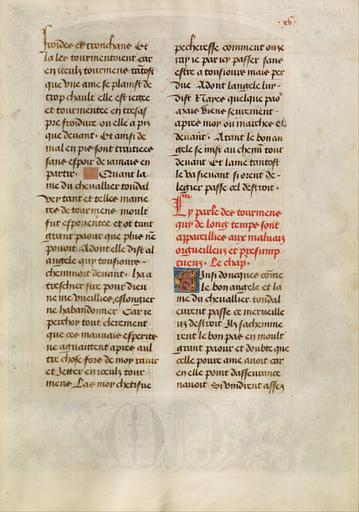 .xv.
froides et tronchans Et
la les tourmentoient car
en iceulx tourmens tantost
que une ame se plaint de
trop chault elle est iectee
et tourmentee en tresas
pre froidure ou elle a pis
que devant · Et ainsi de
mal en pis sont traitiees
sans espoir de iamais en
partir · Quant la
me du chevallier tondal
vey tant et telles manie
res de tourmens moult
fut espoventee et ot tant
grant paour que plus ne
pouoit Adont elle dist al
angele quy tousiours
cheminoit devant · ha a
treschier sire pour dieu
ne me vueilliez eslongier
ne habandonner Car ie
perchoy tout clerement
que ces mauvais esperits
ne aguaittent apres aul
tre chose fors de moy ravir
et Jetter en iceulx tour
mens Las moy chetisve
pecheresse comment ose
ray ie par icy passer sans
estre a tousiours mais per
due Adont langele luy
dist Nayes quelque paour
mais viens seurement
apres moy ou marches cy
devant · Atant le bon an
gele se mist au chemin tout
devant Et lame tantost
le vasievant si orent de
legier passe cel destroit ·
Cy parle des tourmens
quy de long temps sont
appareilliez aux mauvaix
orgueilleux et presump
tueux · Le chap.
Ainsi doncques comme
le bon angele et la
me du chevallier tondal
eurent passe ce merveille
us destroit Ilz sachemine
rent le bon pas en moult
grant paour et doubte que
celle poure ame avoit car
en elle point dasseurance
navoit Si vindrent assez